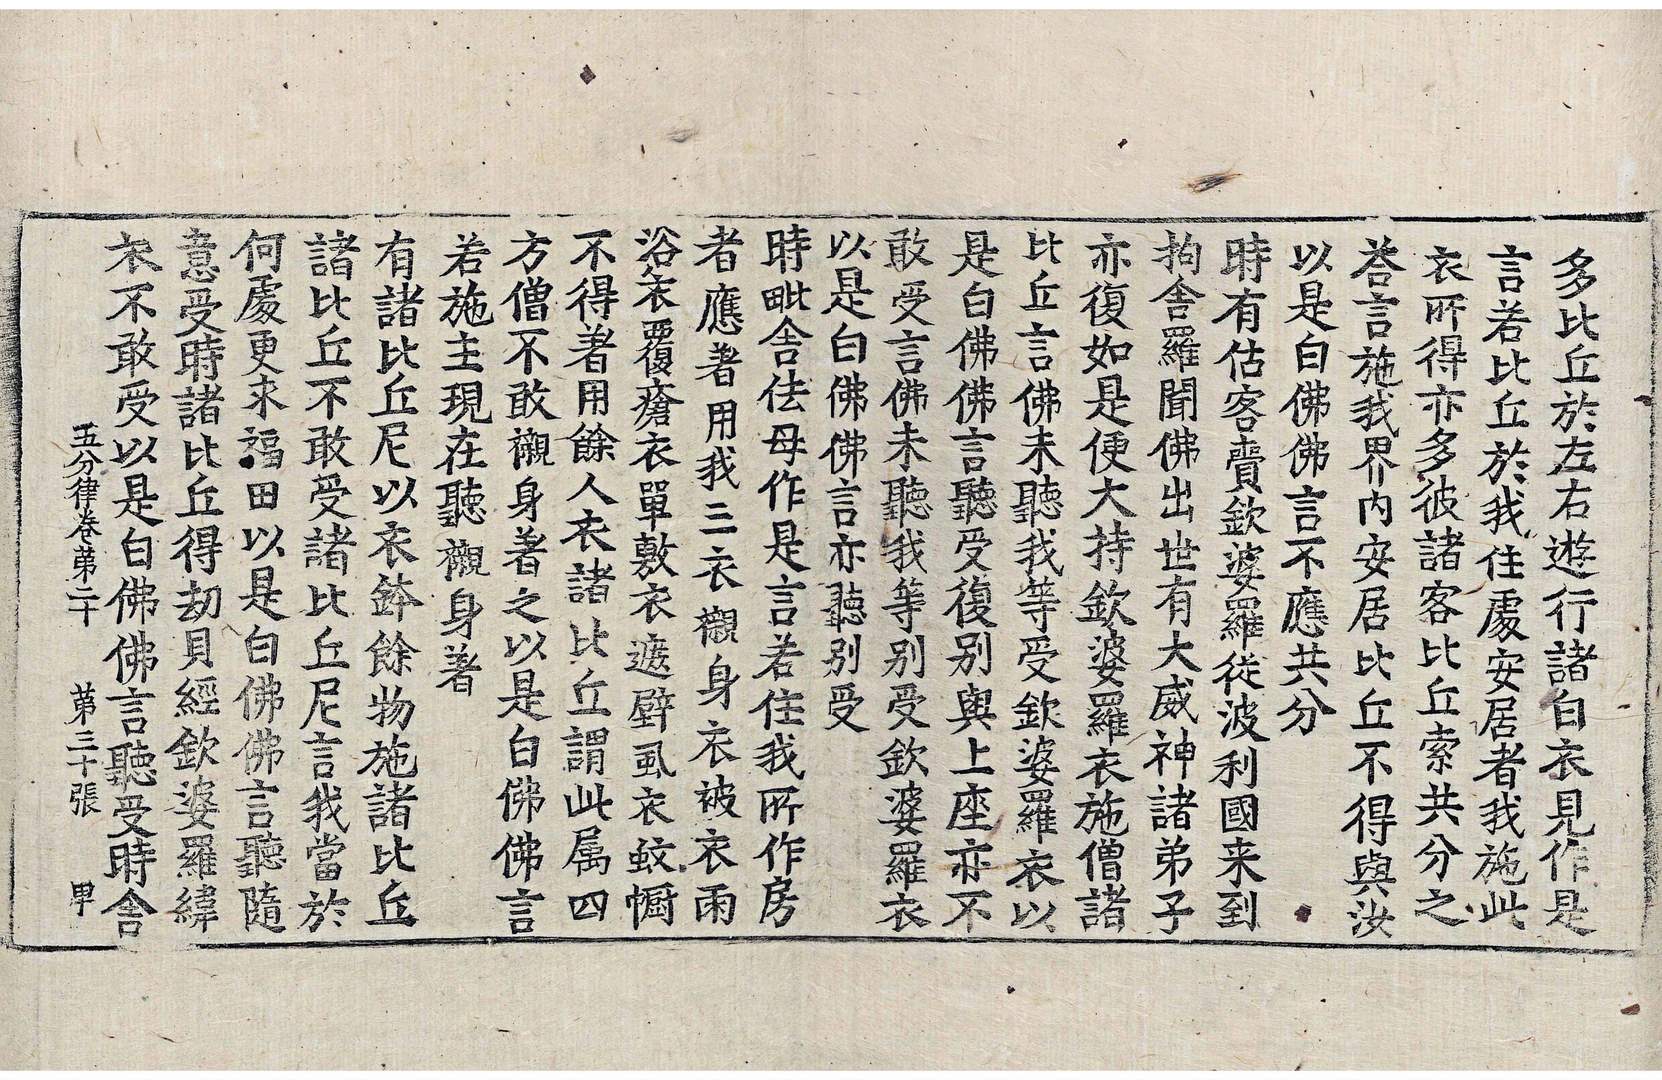 多比丘於左右遊行諸白衣見作是
言若比丘於我住處安居者我施此
衣所得亦多彼諸客比丘索共分之
荅言施我界內安居比丘不得與汝
以是白佛佛言不應共分
時有估客賷欽婆羅從波利國来到
拘舍羅聞佛出世有大威神諸弟子
亦復如是便大持欽婆羅衣施僧諸
比丘言佛未聽我等受欽婆羅衣以
是白佛佛言聽受復別與上座亦不
敢受言佛未聽我等別受欽婆羅衣
以是白佛佛言亦聽別受
時毗舍佉母作是言若住我所作房
者應著用我三衣襯身衣被衣雨
浴衣覆瘡衣單敷衣遮壁虱衣蚊㡡
不得著用餘人衣諸比丘謂此属四
方僧不敢襯身著之以是白佛佛言
若施主現在聽襯身著
有諸比丘尼以衣鉢餘物施諸比丘
諸比丘不敢受諸比丘尼言我當於
何處更求福田以是白佛佛言聽隨
意受時諸比丘得劫貝經欽婆羅緯
衣不敢受以是白佛佛言聽受時舍
五分律卷第二十 第三十張 甲